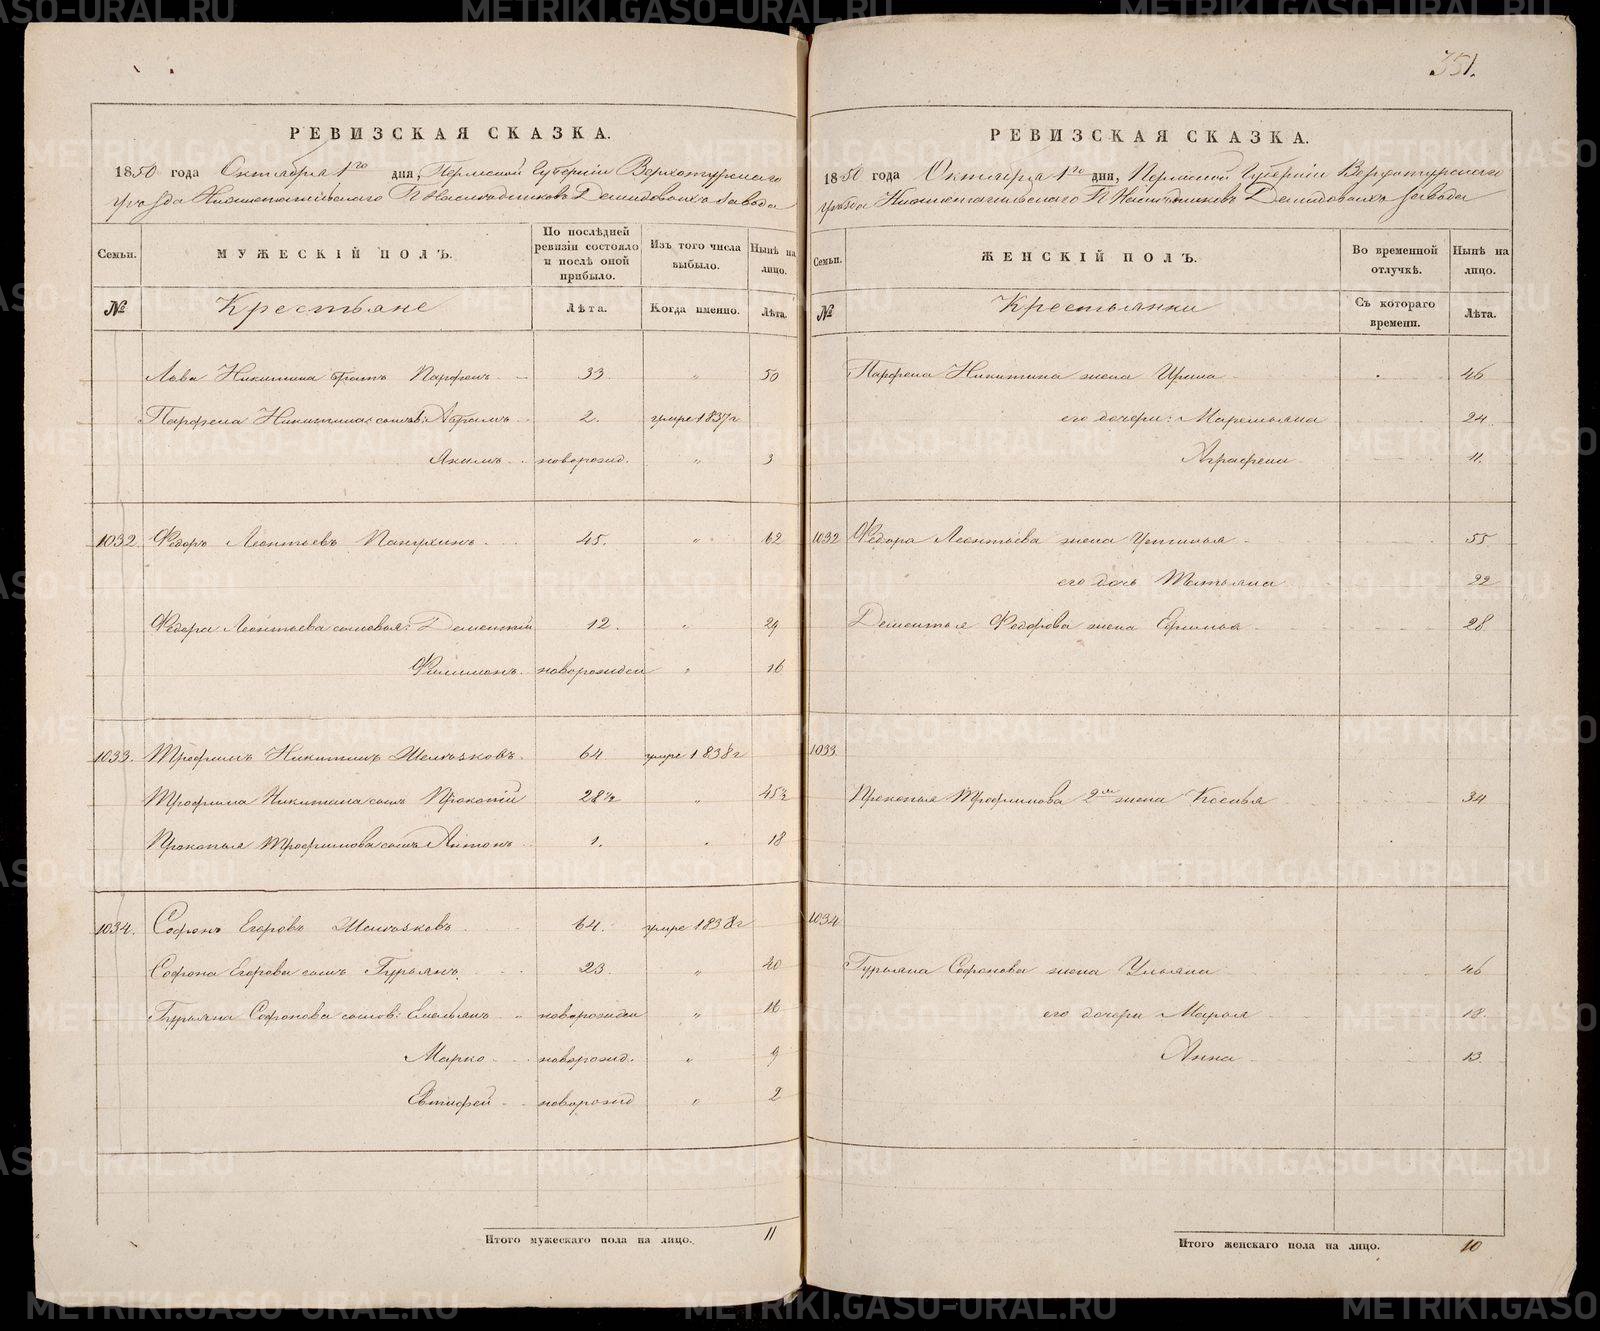 351.
РЕВИЗСКАЯ СКАЗКА.
1850 года Октября 1го дня, Пермской Губернiи Верхотурскаго
уѣзда Нижнетагильскаго Г. Наслѣдниковъ Демидовыхъ завода
Семьи.
МУЖЕСКІЙ ПОЛЪ.
По послѣдней ревизіи состояло и послѣ оной прибыло.
Изъ того числа выбыло.
Нынѣ на лицо.
№
Крестьяне
Лѣта.
Когда именно.
Лѣта.
Льва Никитина братъ Парфенъ 33 " 50
Парфена Никитина сынов: Абрамъ 2. умре 1837г
Якимъ новорожд. " 3
1032. Федоръ Леонтьевъ 45. " 62
Федора Леонтьева сыновья: Дементий 12. " 29
Филимонъ новорожден " 16
1033. Трофимъ Никитинъ Шелковъ 64 умре 1838г
Трофима Никитина сынъ Прокопiй 28½ " 45½
Прокопья Трофимова сынъ Антонъ 1. " 18
1034. Софонъ Егоровъ 64. умре 1838г
Софона Егорова сынъ Гурьянъ 23 " 40
Гурьяна Софонова сынов: Емельянъ новорожден " 16
Марко новорожд. " 9
Евтифей новорожд " 2
Итого мужескаго пола на лицо. 11
РЕВИЗСКАЯ СКАЗКА.
1850 года Октября 1го дня, Пермской Губернiи Верхотурскаго
уѣзда Нижнетагильскаго Г. Наслѣдниковъ Демидовыхъ завода
Семьи.
ЖЕНСКІЙ ПОЛЪ.
Во временной отлучкѣ.
Нынѣ на лицо.
№
Крестьянки
Съ котораго времени.
Лѣта.
Парфена Никитина жена Ирина 46
его дочери: Маремьяна 24
Аграфена 11.
1032 Федора Леонтьева жена Устинья 55
его дочь Татьяна 22
Дементья Федорова жена 28
1033.
Прокопья Трофимова 2я жена Ксенья 34
1034
Гурьяна Софонова жена Ульяна 46
его дочери Марья 18.
Анна 13.
Итого женскаго пола на лицо. 10
METRIKI.GASO-URAL.RU